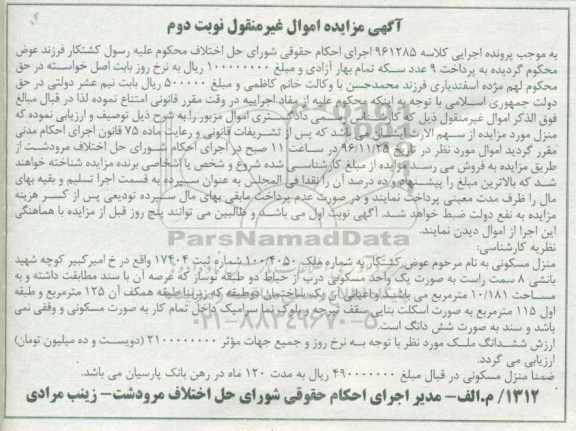 آگهی مزایده اموال غیرمنقول نوبت دوم
به موجب پرونده اجرایی کلاسه ۹۶۱۲۸۵ اجرای احکام حقوقی شورای حل اختلاف محکوم علیه رسول کشتکار فرزند عوض
محکوم گردیده به پرداخت ۹ عدد سکه تمام بهار آزادی و مبلغ ۱۰۰۰۰۰۰۰۰ ریال به نرخ روز بابت اصل خواسته در حق
محکوم لهم مژده اسفندیاری فرزند محمدحسن با وکالت خانم کاظمی و مبلغ ۵۰۰۰۰۰ ریال بابت نیم عشر دولتی در حق
دولت جمهوری اسلامی با توجه به اینکه محکوم علیه از مفاد اجراییه در وقت مقرر قانونی امتناع نموده لذا در قبال مبالغ
فوق الذکر اموال غیرمنقول ذیل که کارشناس رسمی دادگستری اموال مزبور را به شرح ذیل توصیف و ارزیابی نموده که
منزل مورد مزایده از سهم الارث باشد که پس از تشریفات قانونی و رعایت ماده ۷۵ قانون اجرای احکام مدنی
مقرر گردید اموال مورد نظر در تاریخ ۹۶/۱۱/۲۵ در ساعت ۱۱ صبح در اجرای احکام شورای حل اختلاف مرودشت از
طریق مزایده به فروش می رسد مزایده از مبلغ کارشناسی شده شروع و شخص یا اشخاصی برنده مزایده شناخته خواهند
شد که بالاترین مبلغ را پیشنهاد و ده درصد آن را نقدا فی المجلس به عنوان سپرده به قسمت اجرا تسلیم و بقیه بهای
مال را ظرف مدت معینی پرداخت نمایند و در صورت عدم پرداخت مابقی بهای مال سپرده تودیعی پس از کسر هزینه
مزایده به نفع دولت ضبط خواهد شد. آگهی نوبت اول می باشد و طالبین می توانند پنج روز قبل از مزایده با هماهنگی
این اجرا از اموال دیدن نمایند.
نظریه کارشناسی:
منزل مسکونی به نام مرحوم عوض کشتکار به شماره ملک ۱۰۰/۴۰۵۰ شماره ثبت ۱۷۴۰۴ واقع در خ امیرکبیر کوچه شهید
بانشی ۸ سمت راست به صورت یک واحد مسکونی درب از حیاط دو طبقه نوساز که عرصه آن با سند مطابقت داشته و به
مساحت ۱۰/۱۸۱ مترمربع می باشد و اعیانی آن یک ساختمان دوطبقه که زیربنا طبقه همکف آن ۱۲۵ مترمربع و طبقه
اول ۱۱۵ مترمربع به صورت اسکلت بنایی سقف تیرچه و بلوک نما سرامیک داخل تمام کار به صورت مسکونی و وقفی نمی
باشد و سند به صورت شش دانگ است.
ارزش ششدانگ ملک مورد نظر با توجه به نرخ روز و جمیع جهات مؤثر ۲۱۰۰۰۰۰۰۰۰ (دویست و ده میلیون تومان)
ارزیابی می گردد.
ضمنا منزل مسکونی در قبال مبلغ ۴۹۰۰۰۰۰۰۰ ریال به مدت ۱۲۰ ماه در رهن بانک پارسیان می باشد.
۱۳۱۲/ م.الف- مدیر اجرای احکام حقوقی شورای حل اختلاف مرودشت- زینب مرادی
ParsNamadData
۰۲۱-۸۸۳۴۹۶۷۰-۵